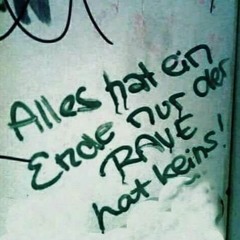 Alles hat ein
Ende nur der
RAVE
hat keins!